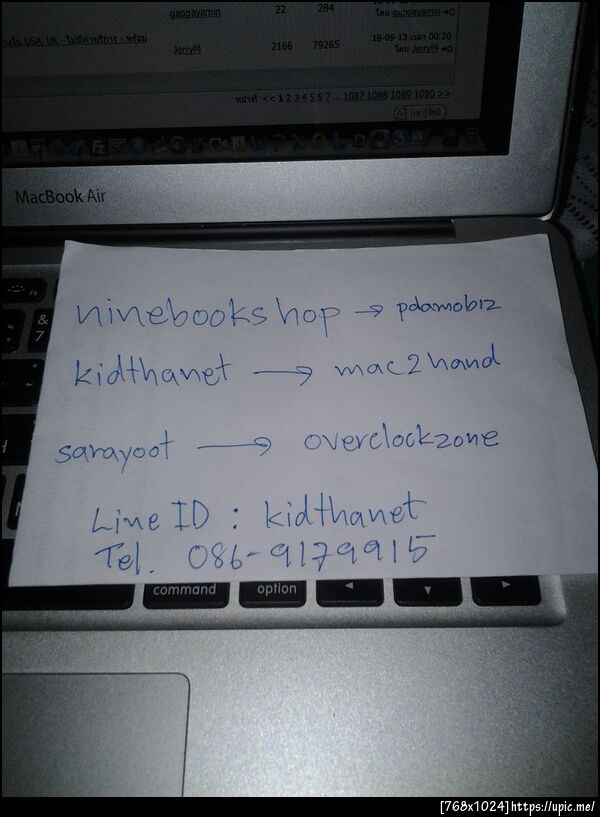 gappayamin 22 284 โดย gappayamin
18-09-13 เวลา 00:20
USA, UK - ไม่มีค่าบริการ - พร้อม Jerryf4 2166 79265 โดย Jerryf4
หน้าที่ << 1 2 3 4 5 6 7 ... 1087 1088 1089 1090 >>
MacBook Air
ninebookshop → pdamobiz
kidthanet → mac2hand
sarayoot → overclockzone
Line ID : kidthanet
Tel. 086-9179915
& 7
command option
[768x1024] https://upic.me/